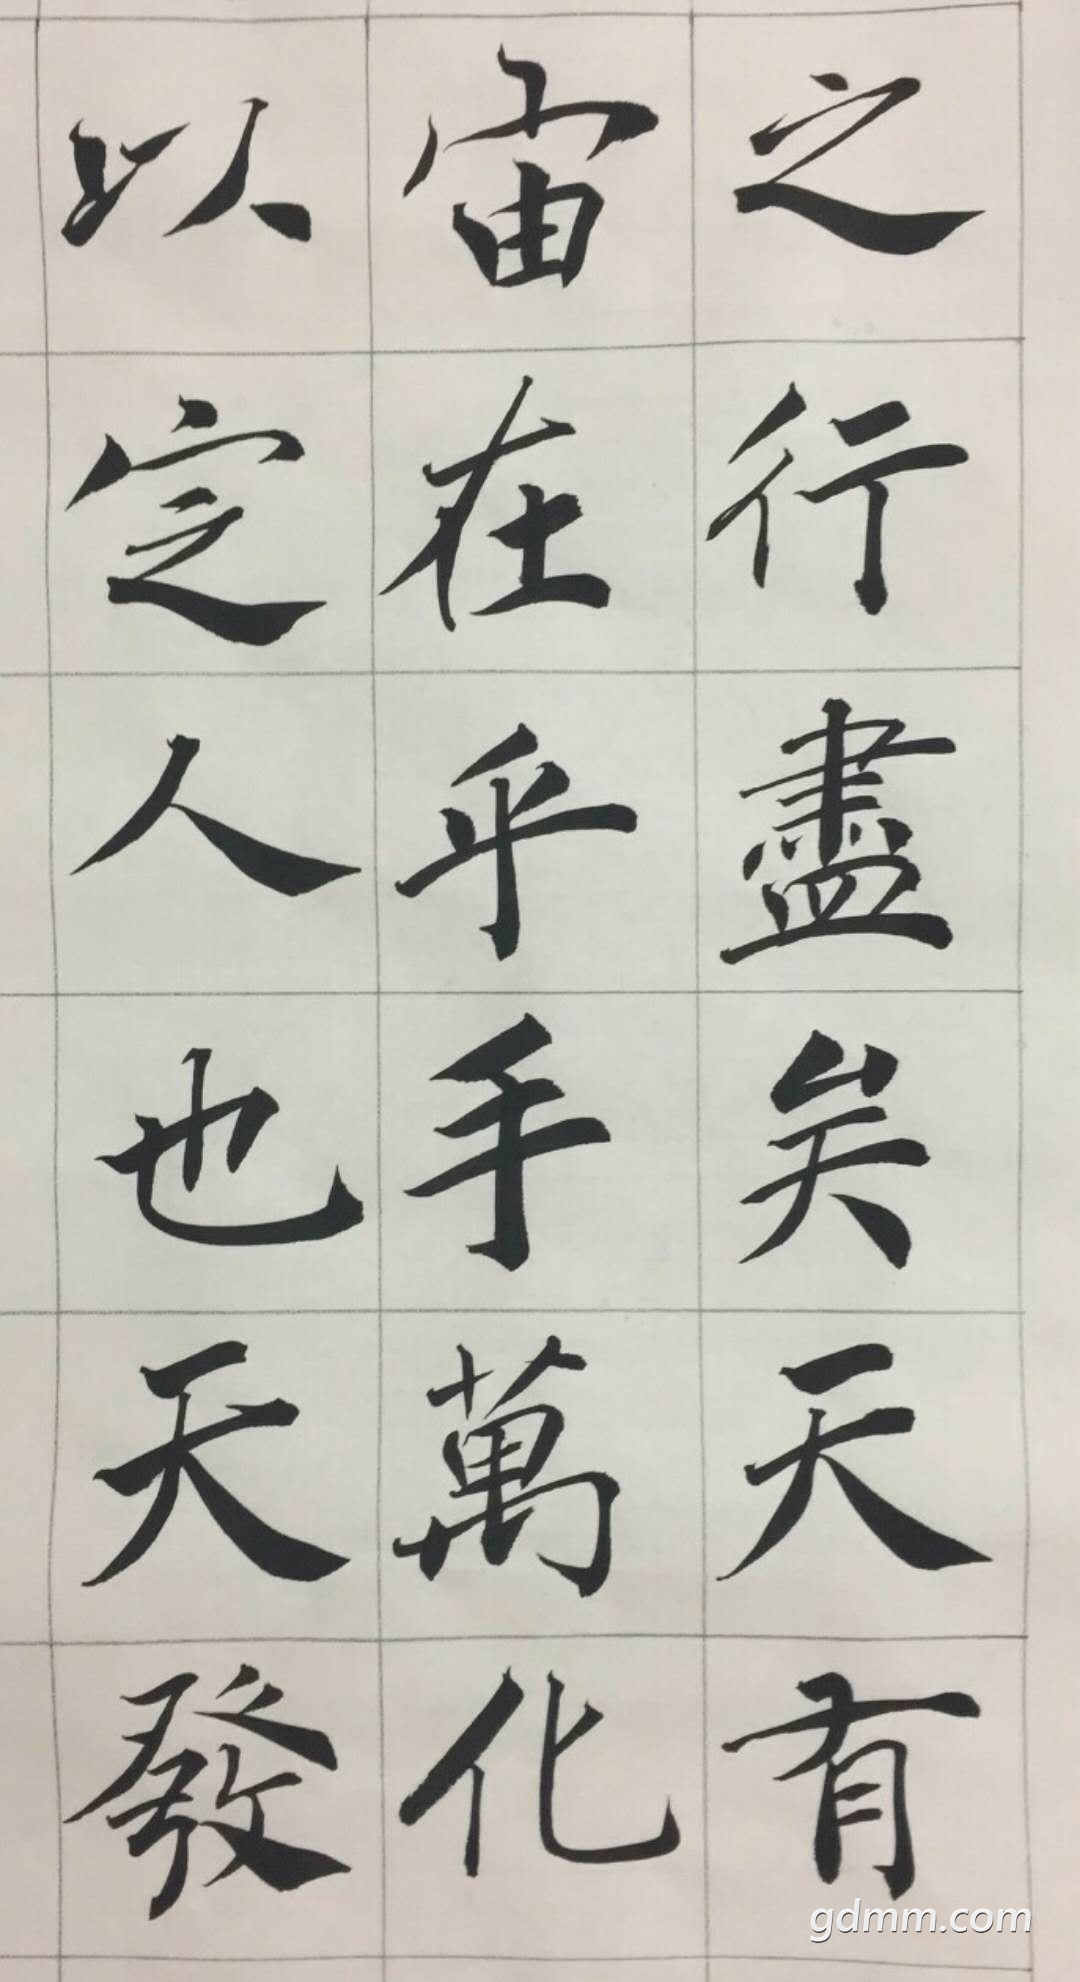 之行盡矣天有
宙在乎手萬化
以定人也天發
gdmm.com